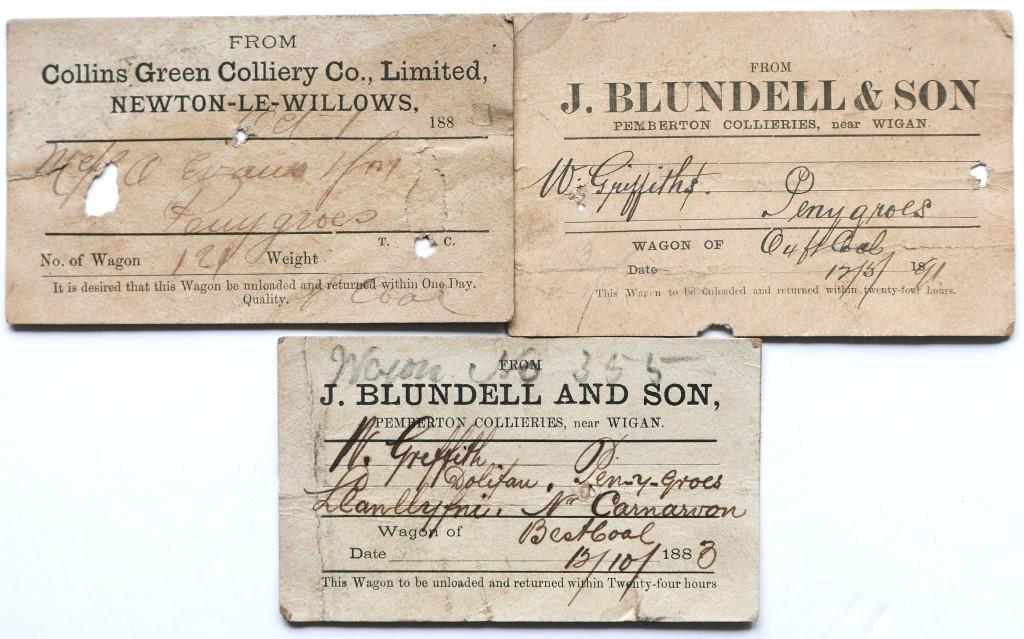 FROM
Collins Green Colliery Co., Limited,
NEWTON-LE-WILLOWS,
Oct 1 188
Evans
Penygroes
T. C.
No. of Wagon 121 Weight
It is desired that this Wagon be unloaded and returned within One Day.
Quality. Coal
FROM
J. BLUNDELL & SON
PEMBERTON COLLIERIES, near WIGAN.
W. Griffiths.
Penygroes
WAGON OF Coal
Date 12/5/ 1891
This Wagon to be unloaded and returned within twenty-four hours.
Wagon No 355
FROM
J. BLUNDELL AND SON,
PEMBERTON COLLIERIES, near WIGAN.
W. Griffith
Dolifan. Pen-y-Groes
Llanllyfni. Nr Carnarvon
Wagon of Best Coal
Date 12/10/ 1883
This Wagon to be unloaded and returned within Twenty-four hours